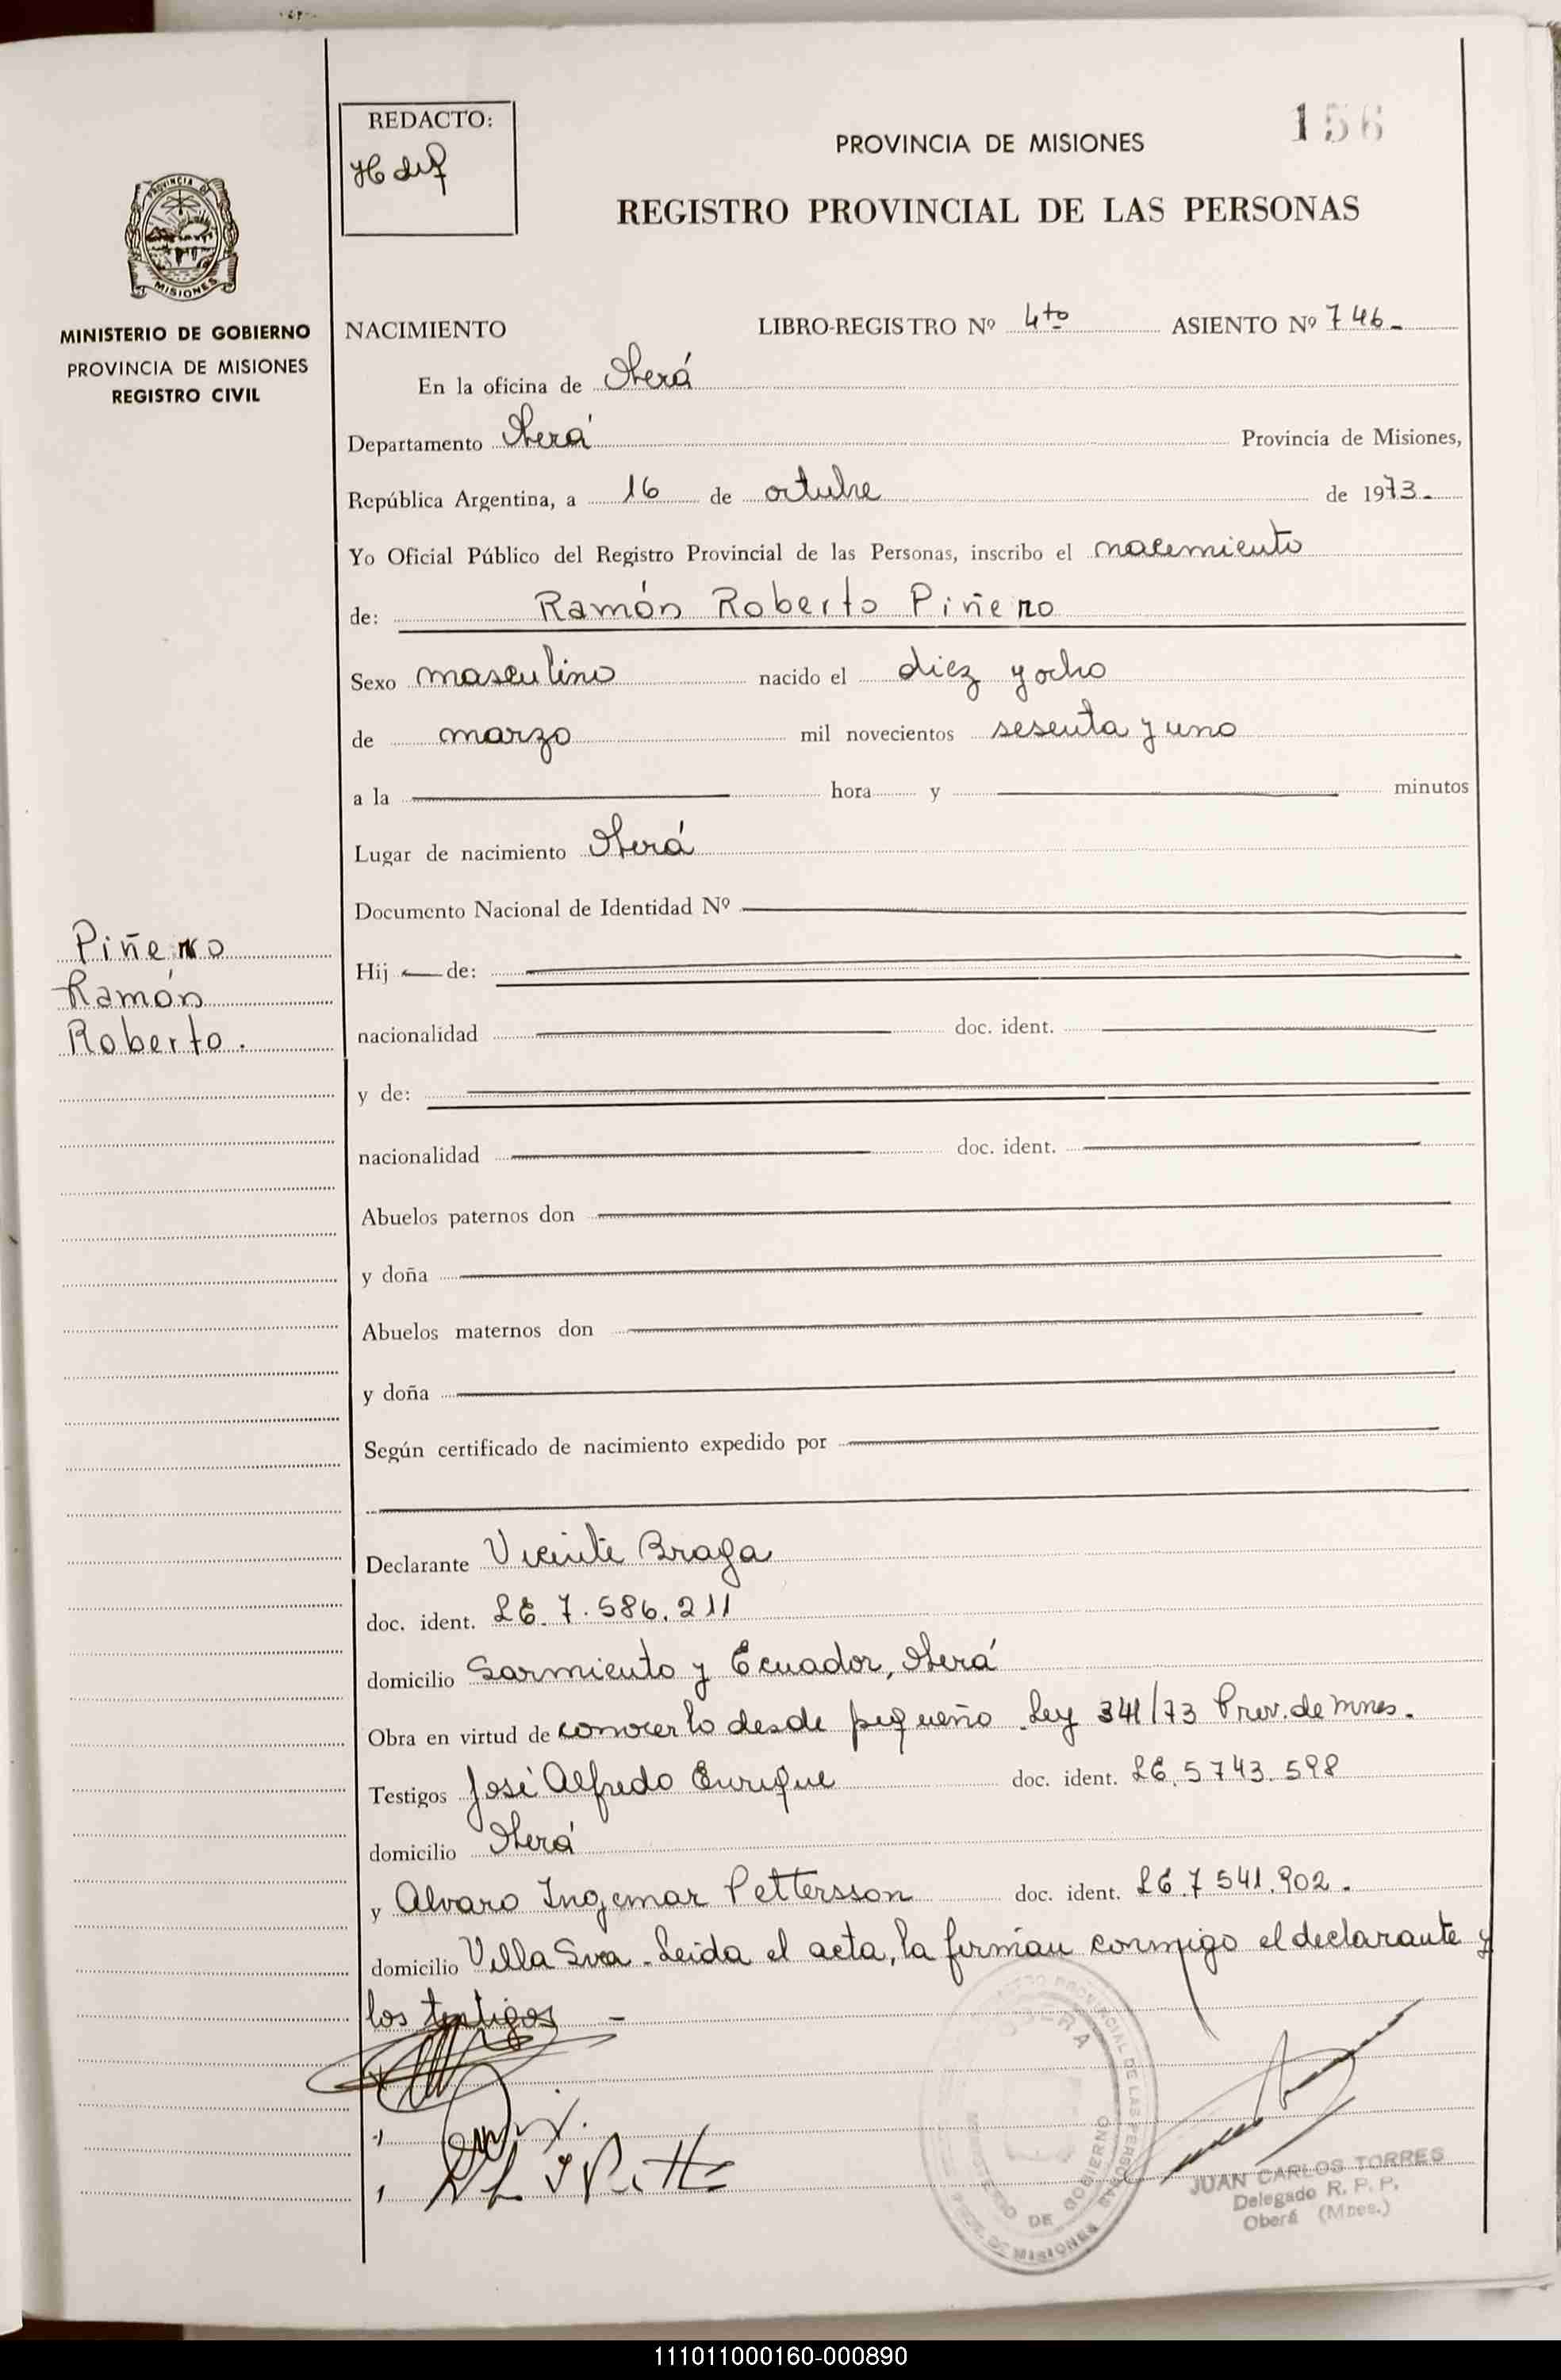 REDACTO:
156
PROVINCIA DE MISIONES
REGISTRO PROVINCIAL DE LAS PERSONAS
PROVINCIA DE
MISIONES
MINISTERIO DE GOBIERNO
PROVINCIA DE MISIONES
REGISTRO CIVIL
NACIMIENTO LIBRO-REGISTRO Nº 4to ASIENTO Nº 746-
En la oficina de Oberá
Departamento Oberá Provincia de Misiones,
República Argentina, a 16 de octubre de 1973-
Yo Oficial Público del Registro Provincial de las Personas, inscribo el nacimiento
de: Ramón Roberto Piñero
Sexo masculino nacido el diez y ocho
de marzo mil novecientos sesenta y uno
a la hora y minutos
Lugar de nacimiento Oberá
Documento Nacional de Identidad Nº
Piñero
Ramón
Roberto.
Hij de:
nacionalidad doc. ident.
y de:
nacionalidad doc. ident.
Abuelos paternos don
y doña
Abuelos maternos don
y doña
Según certificado de nacimiento expedido por
Declarante Vicente Braga
doc. ident. LE. 7.586.211
domicilio Sarmiento y Ecuador, Oberá
Obra en virtud de conocerlo desde pequeño Ley 341/73 Prov. de Mnes.
Testigos José Alfredo Enrique doc. ident. LE. 5743.598
domicilio Oberá
y Alvaro Ingemar Pettersson doc. ident. LE. 7 541.902.
domicilio Villa Svea. Leida el acta, la firman conmigo el declarante y
los testigos -
OBERA
MINISTERIO DE GOBIERNO
PROVINCIAL DE LAS PERSONAS
DE MISIONES
JUAN CARLOS TORRES
Delegado R. P. P.
Oberá (Mnes.)
111011000160-000890